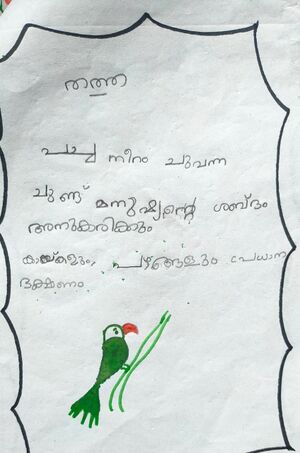 തത്ത
പച്ച നീറം ചുവന്ന
ചുണ്ട് മനുഷ്യന്റെ ശബ്ദം
അനുകരിക്കും
കായ്കളും, പഴങ്ങളും പ്രധാന
ഭക്ഷണം